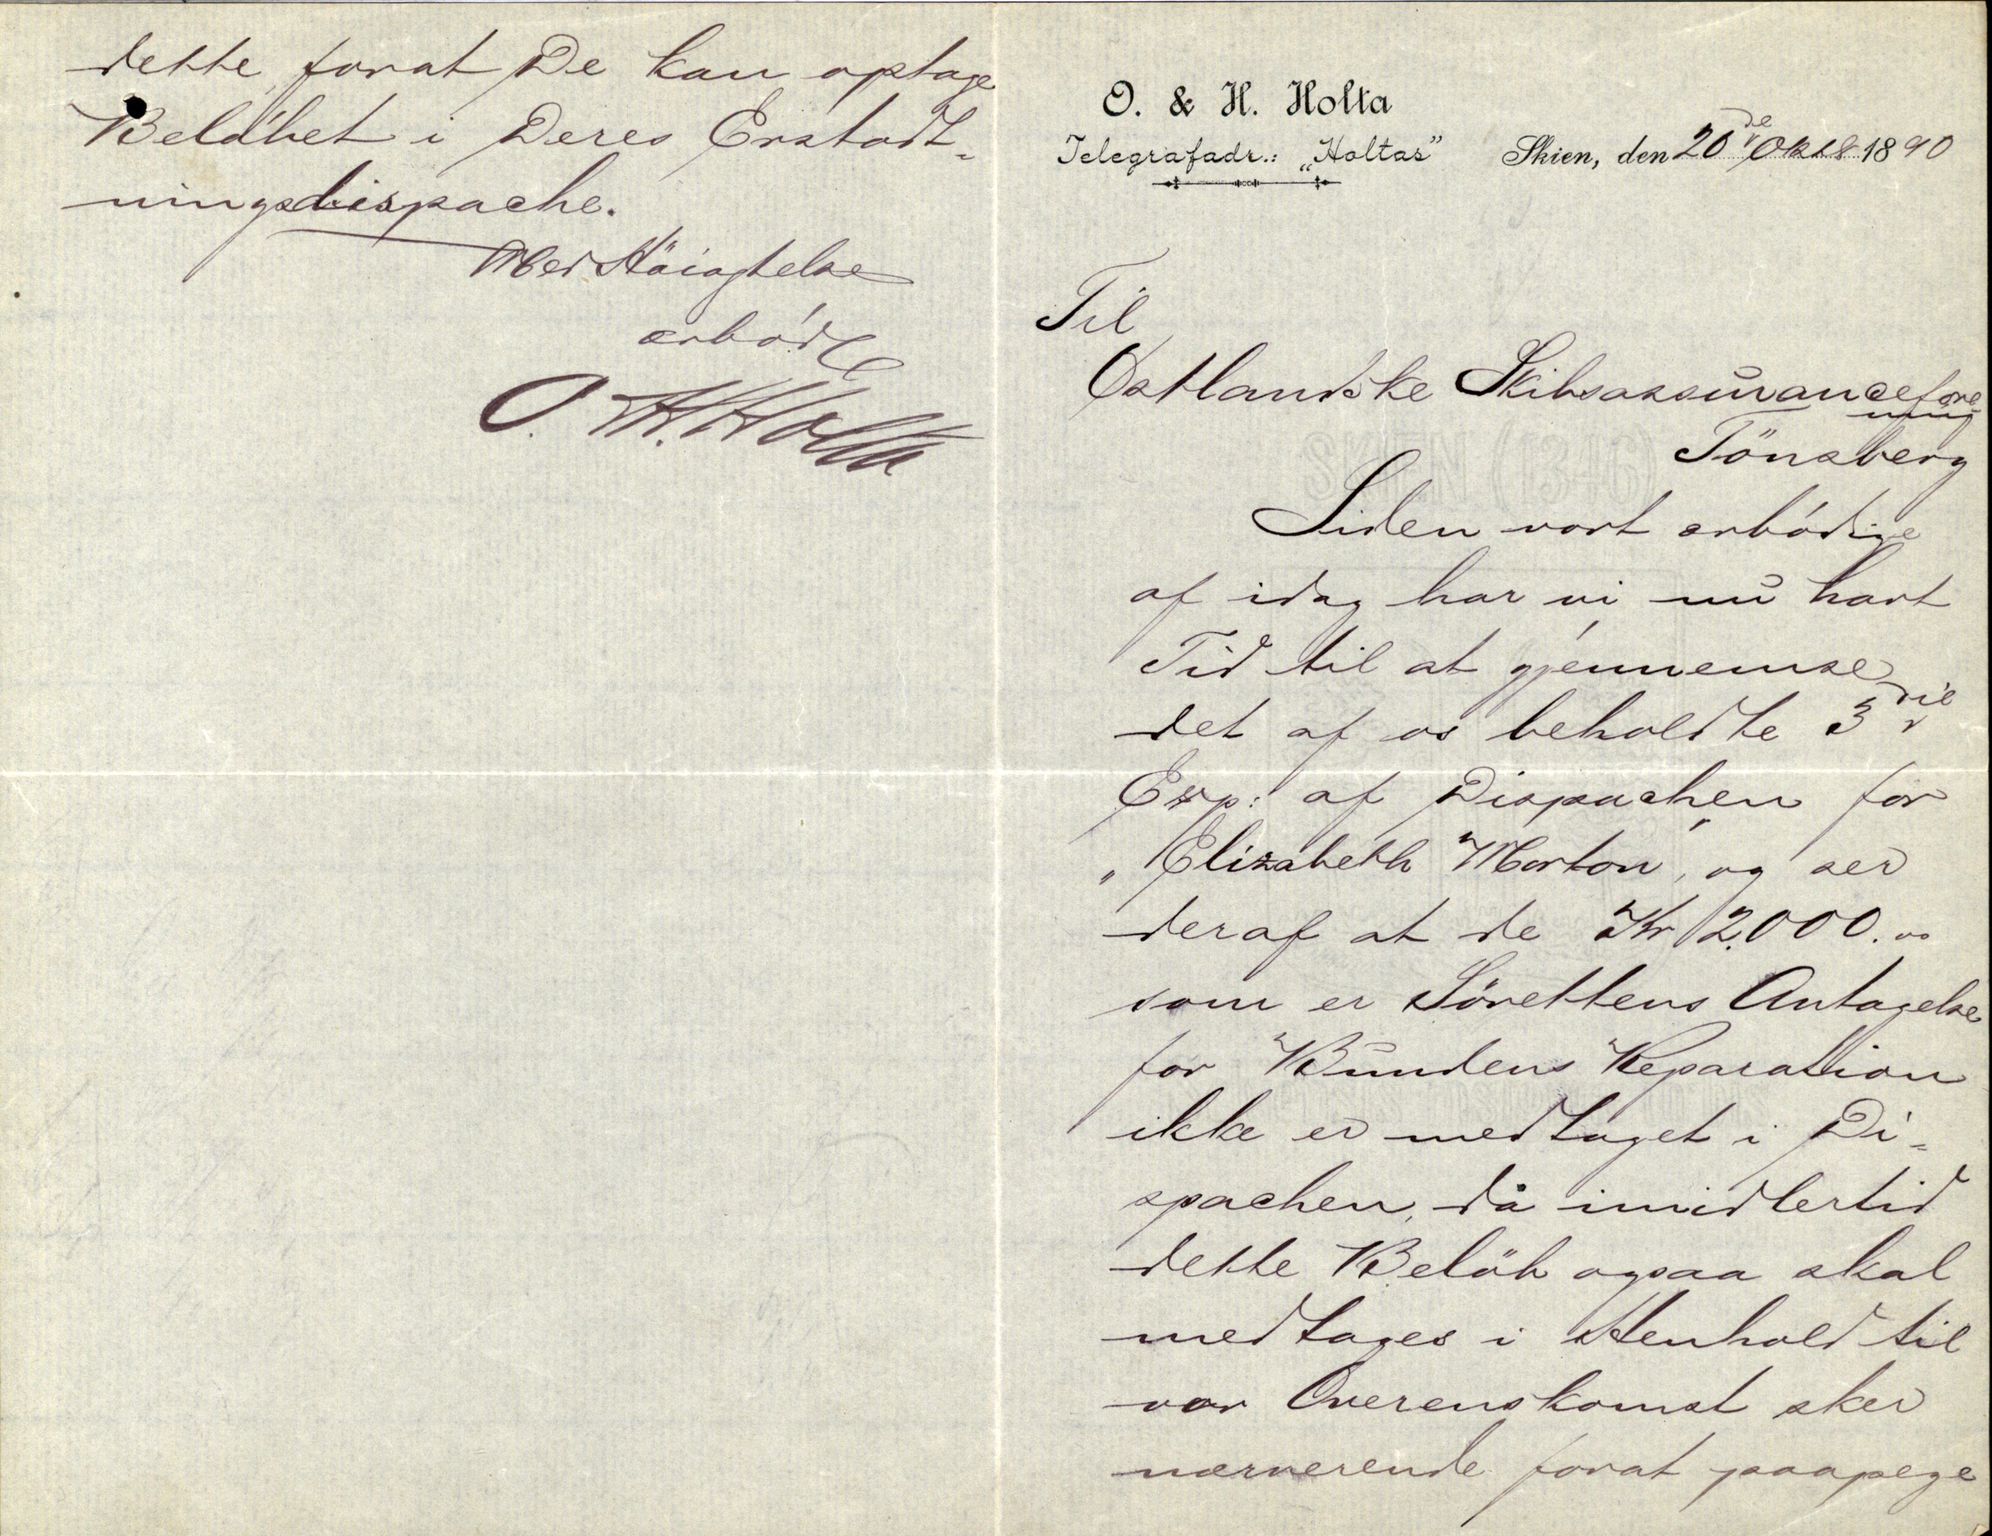 O. & H. Holta
Telegrafadr.: „Holtas”
Skien, den 20de Oktb 1890
Til
Østlandske Skibsassuranceforening
Tönsberg
Siden vort ærbödige
af idag har vi nu havt
Tid til at gjennemse
det af os beholdte 3die
Exp: af Dispachen for
„Elizabeth Morton, og ser
deraf at de Kr 2.000.00
som er Sörettens Antagelse
for Bundens Reparation
ikke er medtaget i Di-
spachen, då imidlertid
dette Belöb ogsaa skal
medtages i Henhold til
vor Overenskomst sker
nærverende forat paapege
dette, forat De kan optage
Belöbet i Deres Erstadt-
ningsdispache.
Med Höiagtelse
ærböd
O. H. Holta
SKIEN (1346)